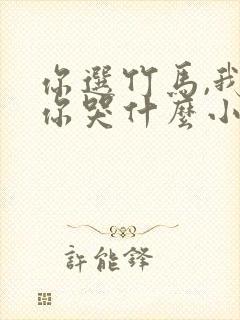 你選竹馬,我
你哭什麼小
許能鋒